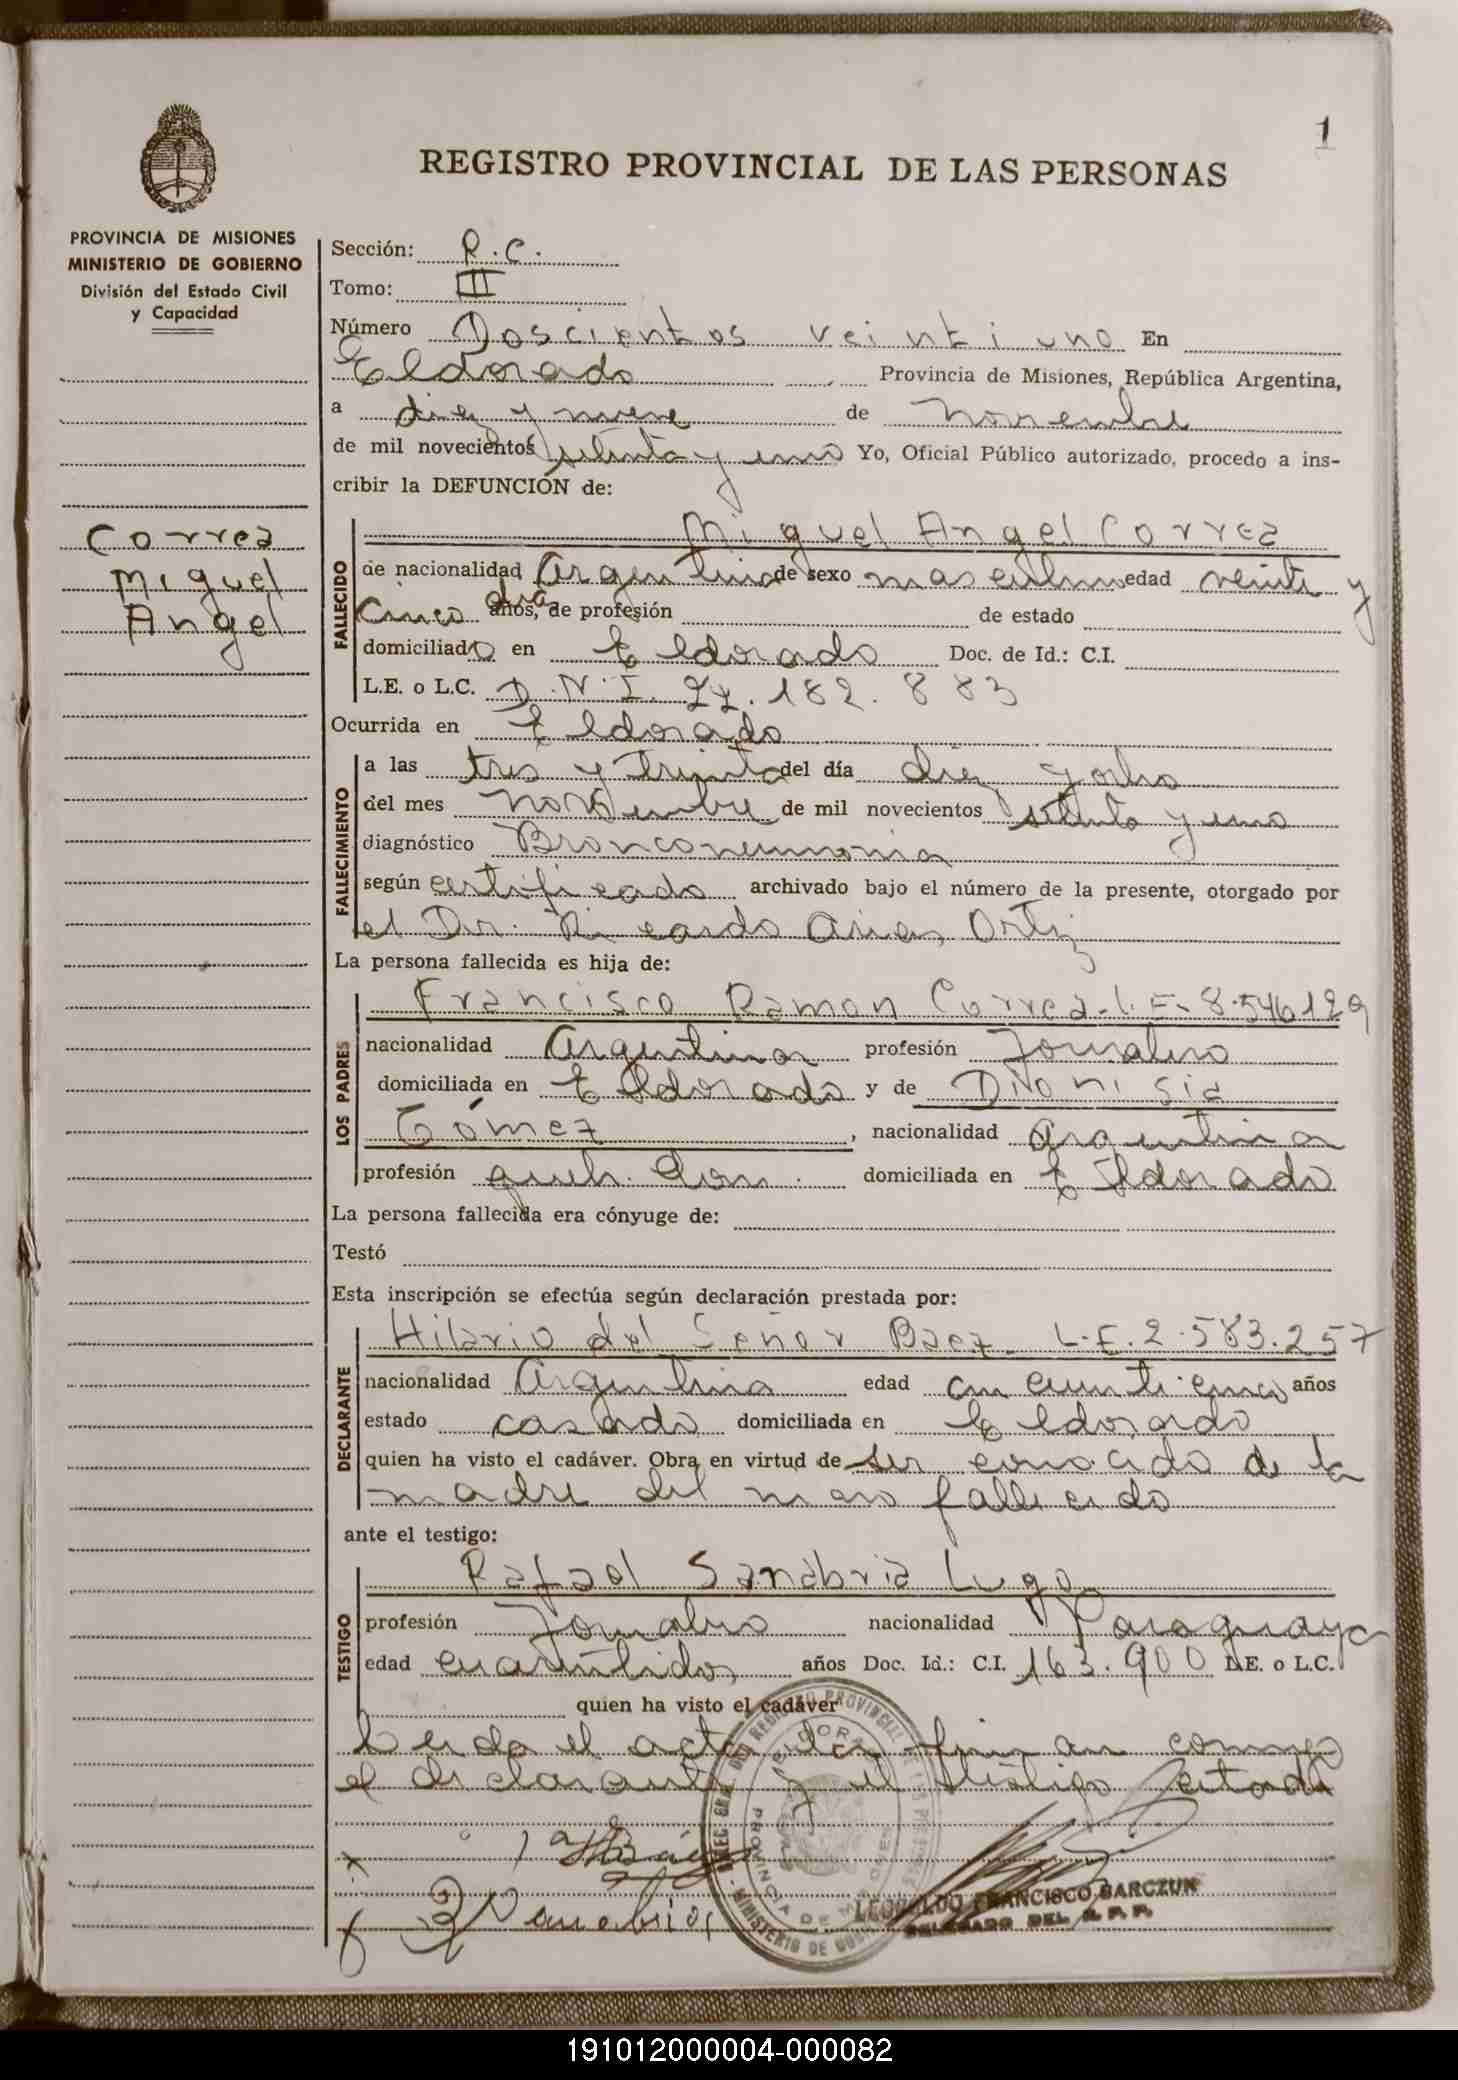 1
REGISTRO PROVINCIAL DE LAS PERSONAS
PROVINCIA DE MISIONES
MINISTERIO DE GOBIERNO
División del Estado Civil
y Capacidad
Correa
Miguel
Angel
Sección: R.C.
Tomo: III
Número Doscientos veintiuno En
Eldorado Provincia de Misiones, República Argentina,
a diez y nueve de noviembre
de mil novecientos setenta y uno Yo, Oficial Público autorizado, procedo a ins-
cribir la DEFUNCION de:
FALLECIDO
Miguel Angel Correa
de nacionalidad Argentina de sexo masculino edad veinte y
cinco días años, de profesión de estado
domiciliado en Eldorado Doc. de Id.: C.I.
L.E. o L.C. D.N.I. 22.182.883
Ocurrida en Eldorado
FALLECIMIENTO
a las tres y treinta del día diez y ocho
del mes noviembre de mil novecientos setenta y uno
diagnóstico Bronconeumonia
según certificado archivado bajo el número de la presente, otorgado por
el Dr. Ricardo Arias Ortiz
La persona fallecida es hija de:
LOS PADRES
Francisco Ramon Correa - L.E. 8.546129
nacionalidad Argentina profesión Jornalero
domiciliada en Eldorado y de Dionisia
Gómez, nacionalidad argentina
profesión queh. dom. domiciliada en Eldorado
La persona fallecida era cónyuge de:
Testó
Esta inscripción se efectúa según declaración prestada por:
DECLARANTE
Hilario del Señor Baez - L.E. 2.583.257
nacionalidad Argentina edad cincuenticinco años
estado casado domiciliada en Eldorado
quien ha visto el cadáver. Obra en virtud de ser conocido de la
madre del fallecido
ante el testigo:
TESTIGO
Rafael Sanabria Lugo
profesión Jornalero nacionalidad Paraguaya
edad cuarentidos años Doc. Id.: C.I. 163.900 L.E. o L.C.
quien ha visto el cadáver
Leida el acta la firman conmigo
el declarante y el testigo citado
LEOPOLDO FRANCISCO BARCZUK
DELEGADO DEL R. P. P.
191012000004-000082